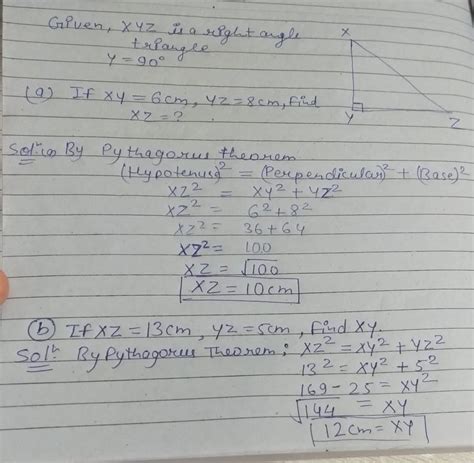 Given, XYZ is a right angle
triangle
Y = 90°
X
Y
Z
(a) If XY = 6cm, YZ = 8cm, find
XZ = ?
Solⁿ By Pythagorus theorem
(Hypotenus)² = (Perpendicular)² + (Base)²
XZ² = XY² + YZ²
XZ² = 6² + 8²
XZ² = 36 + 64
XZ² = 100
XZ = √100
XZ = 10cm
(b) If XZ = 13cm, YZ = 5cm, find XY.
Solⁿ By Pythagorus Theorem; XZ² = XY² + YZ²
13² = XY² + 5²
169 - 25 = XY²
√144 = XY
12cm = XY